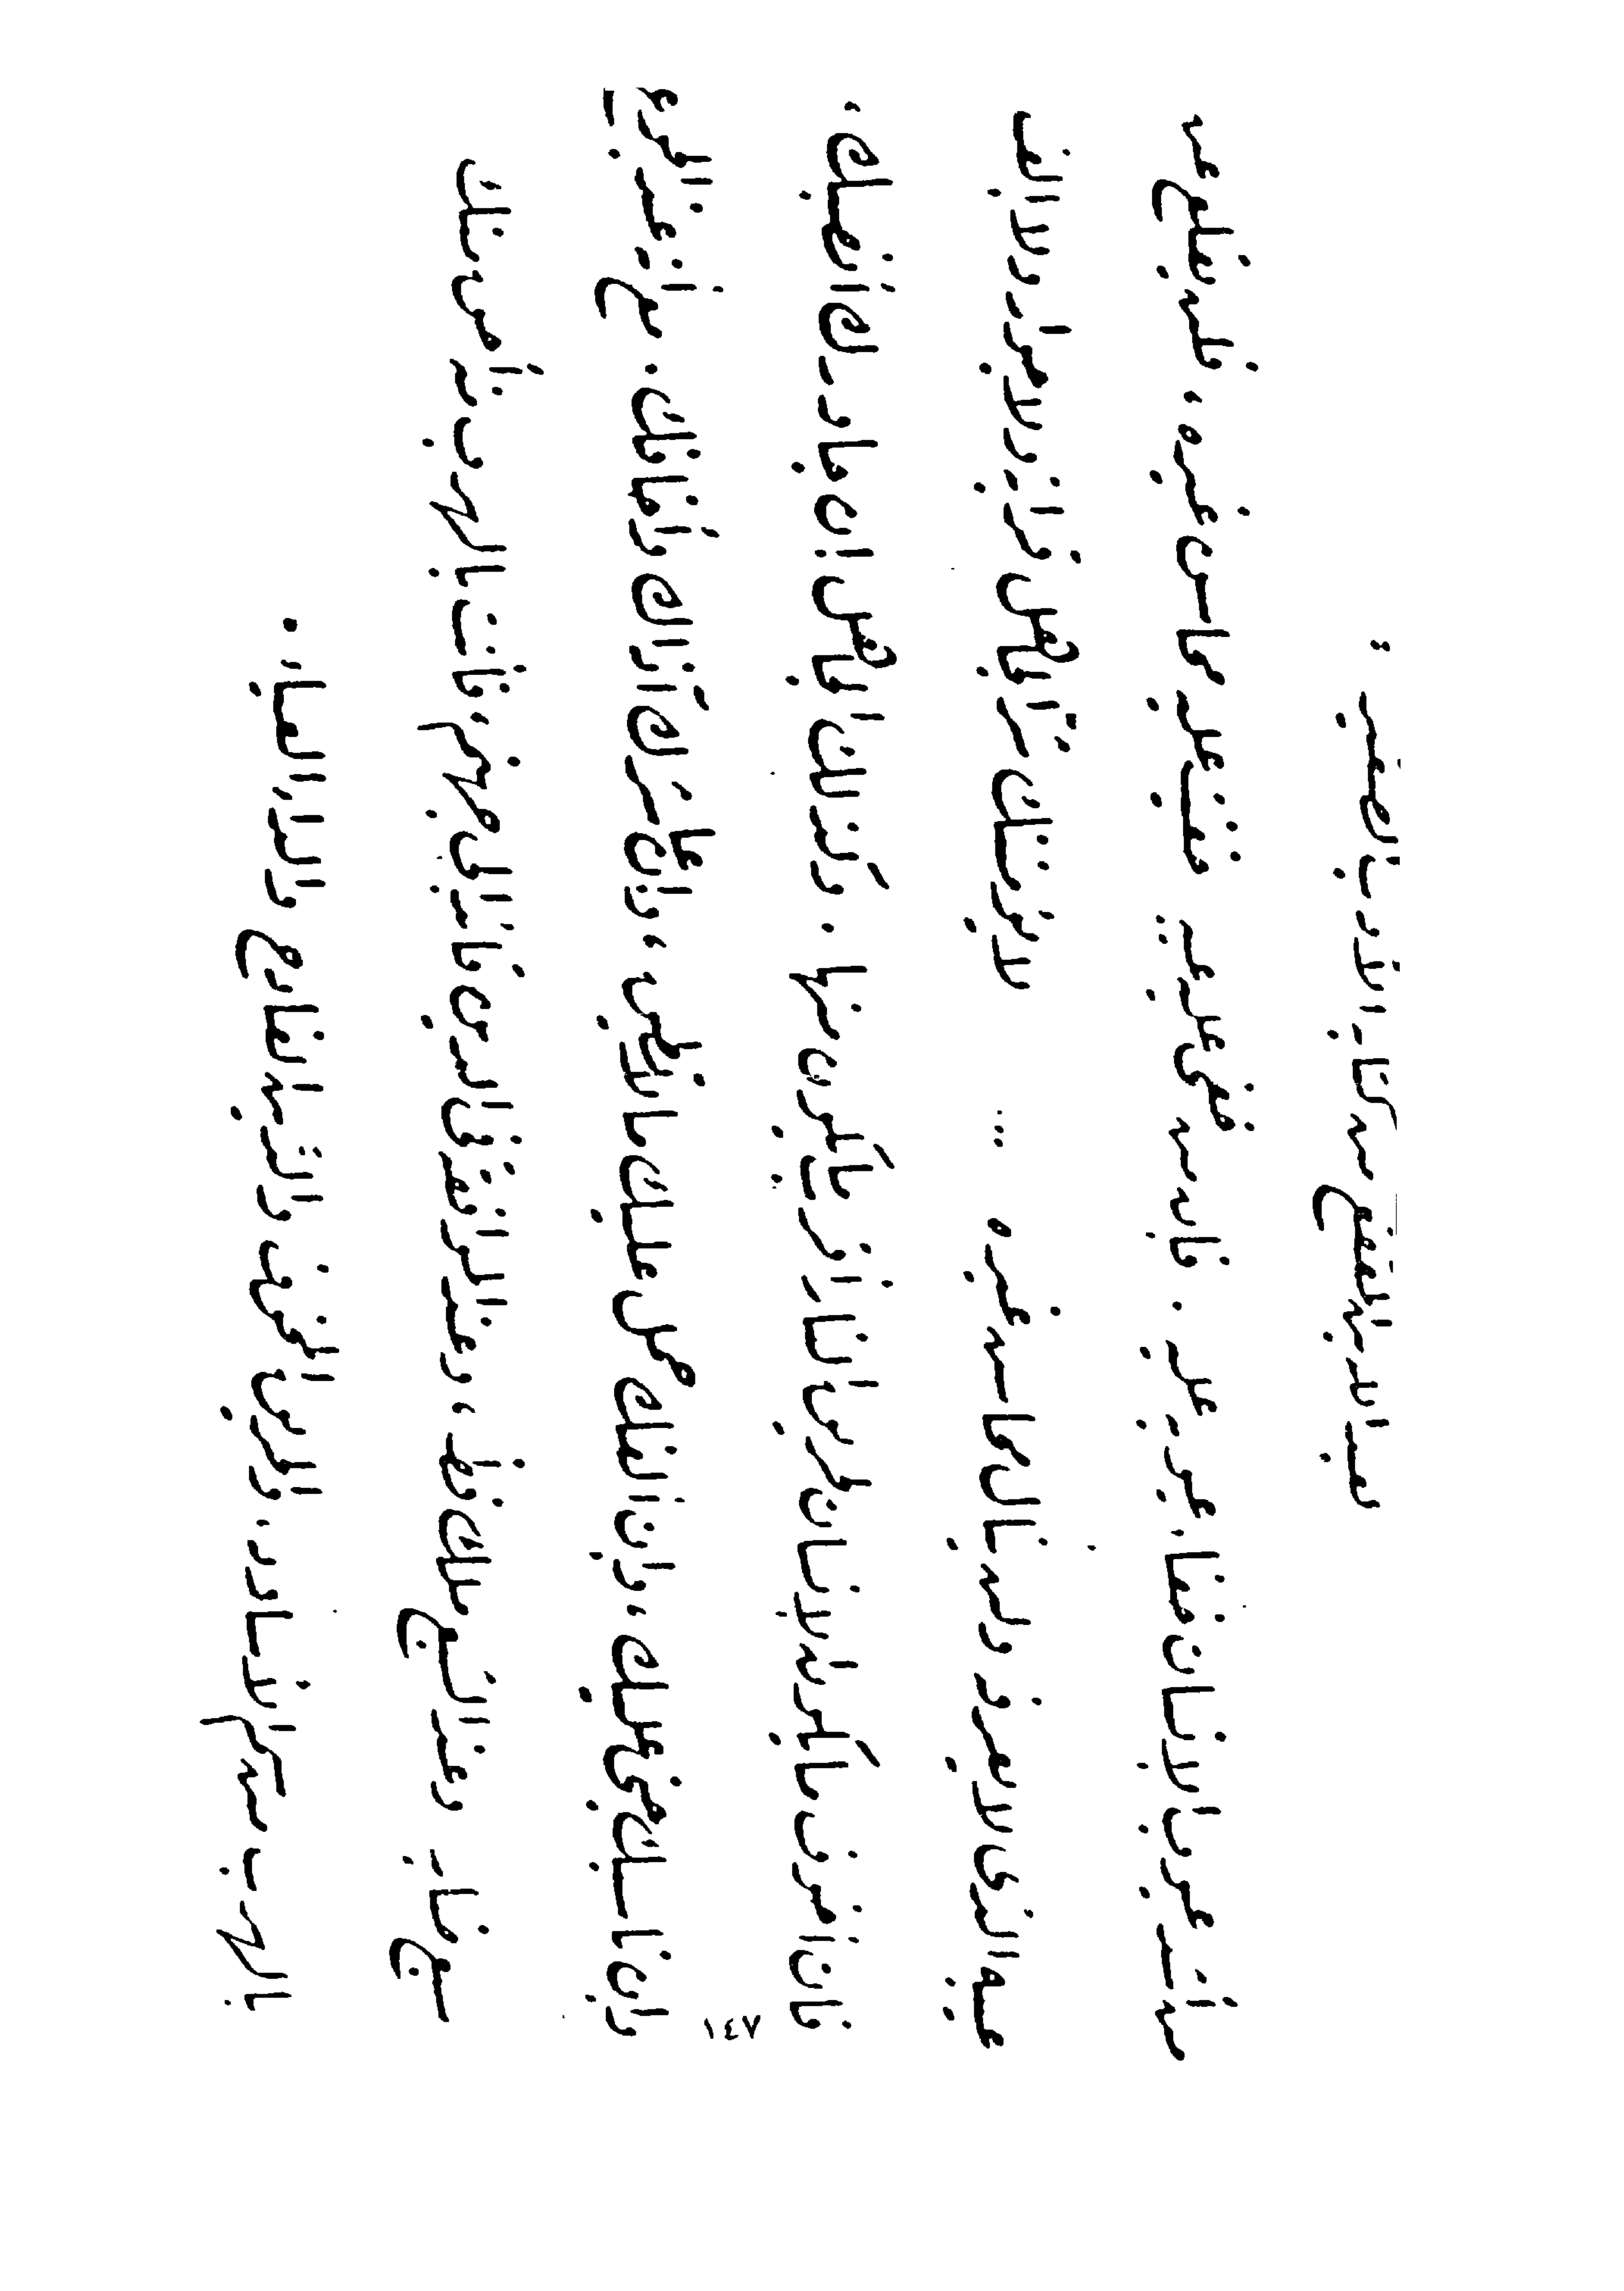 لعبد الله بن المقفع من كتابه الأدب الصغير :
من أشد عيوب الإنسان خفاء عيوبه عليه . فإنه من خفى عليه عيبه خفيت عليه محاسن غيره ، فلن يقلع عن
عيبه الذى لا يعرف ولن ينال محاسن غيره ... لا يؤمننك شرَّ الجاهل قرابة ولا جوار ولا إلف
فإن أخوف ما يكون الإنسان لحريق النار أقرب ما يكون منها . وكذلك الجاهل إن جاورك أنصبك ،
وإن ناسبك جنى عليك ، وإن ألفك حمل عليك ما لا تطيق ، وإن عاشرك آذاك وأخافك . مع أنه عند الجوع
سبع ضار وعند الشبع ملك فظ ، وعند الموافقة فى الدين قائد إلى جهنم ، فأنت بالهرب منه أحق منك
بالهرب من سم الأساود ، والحريق المخوف والدين الفادح والداء العياء .
١٤٧